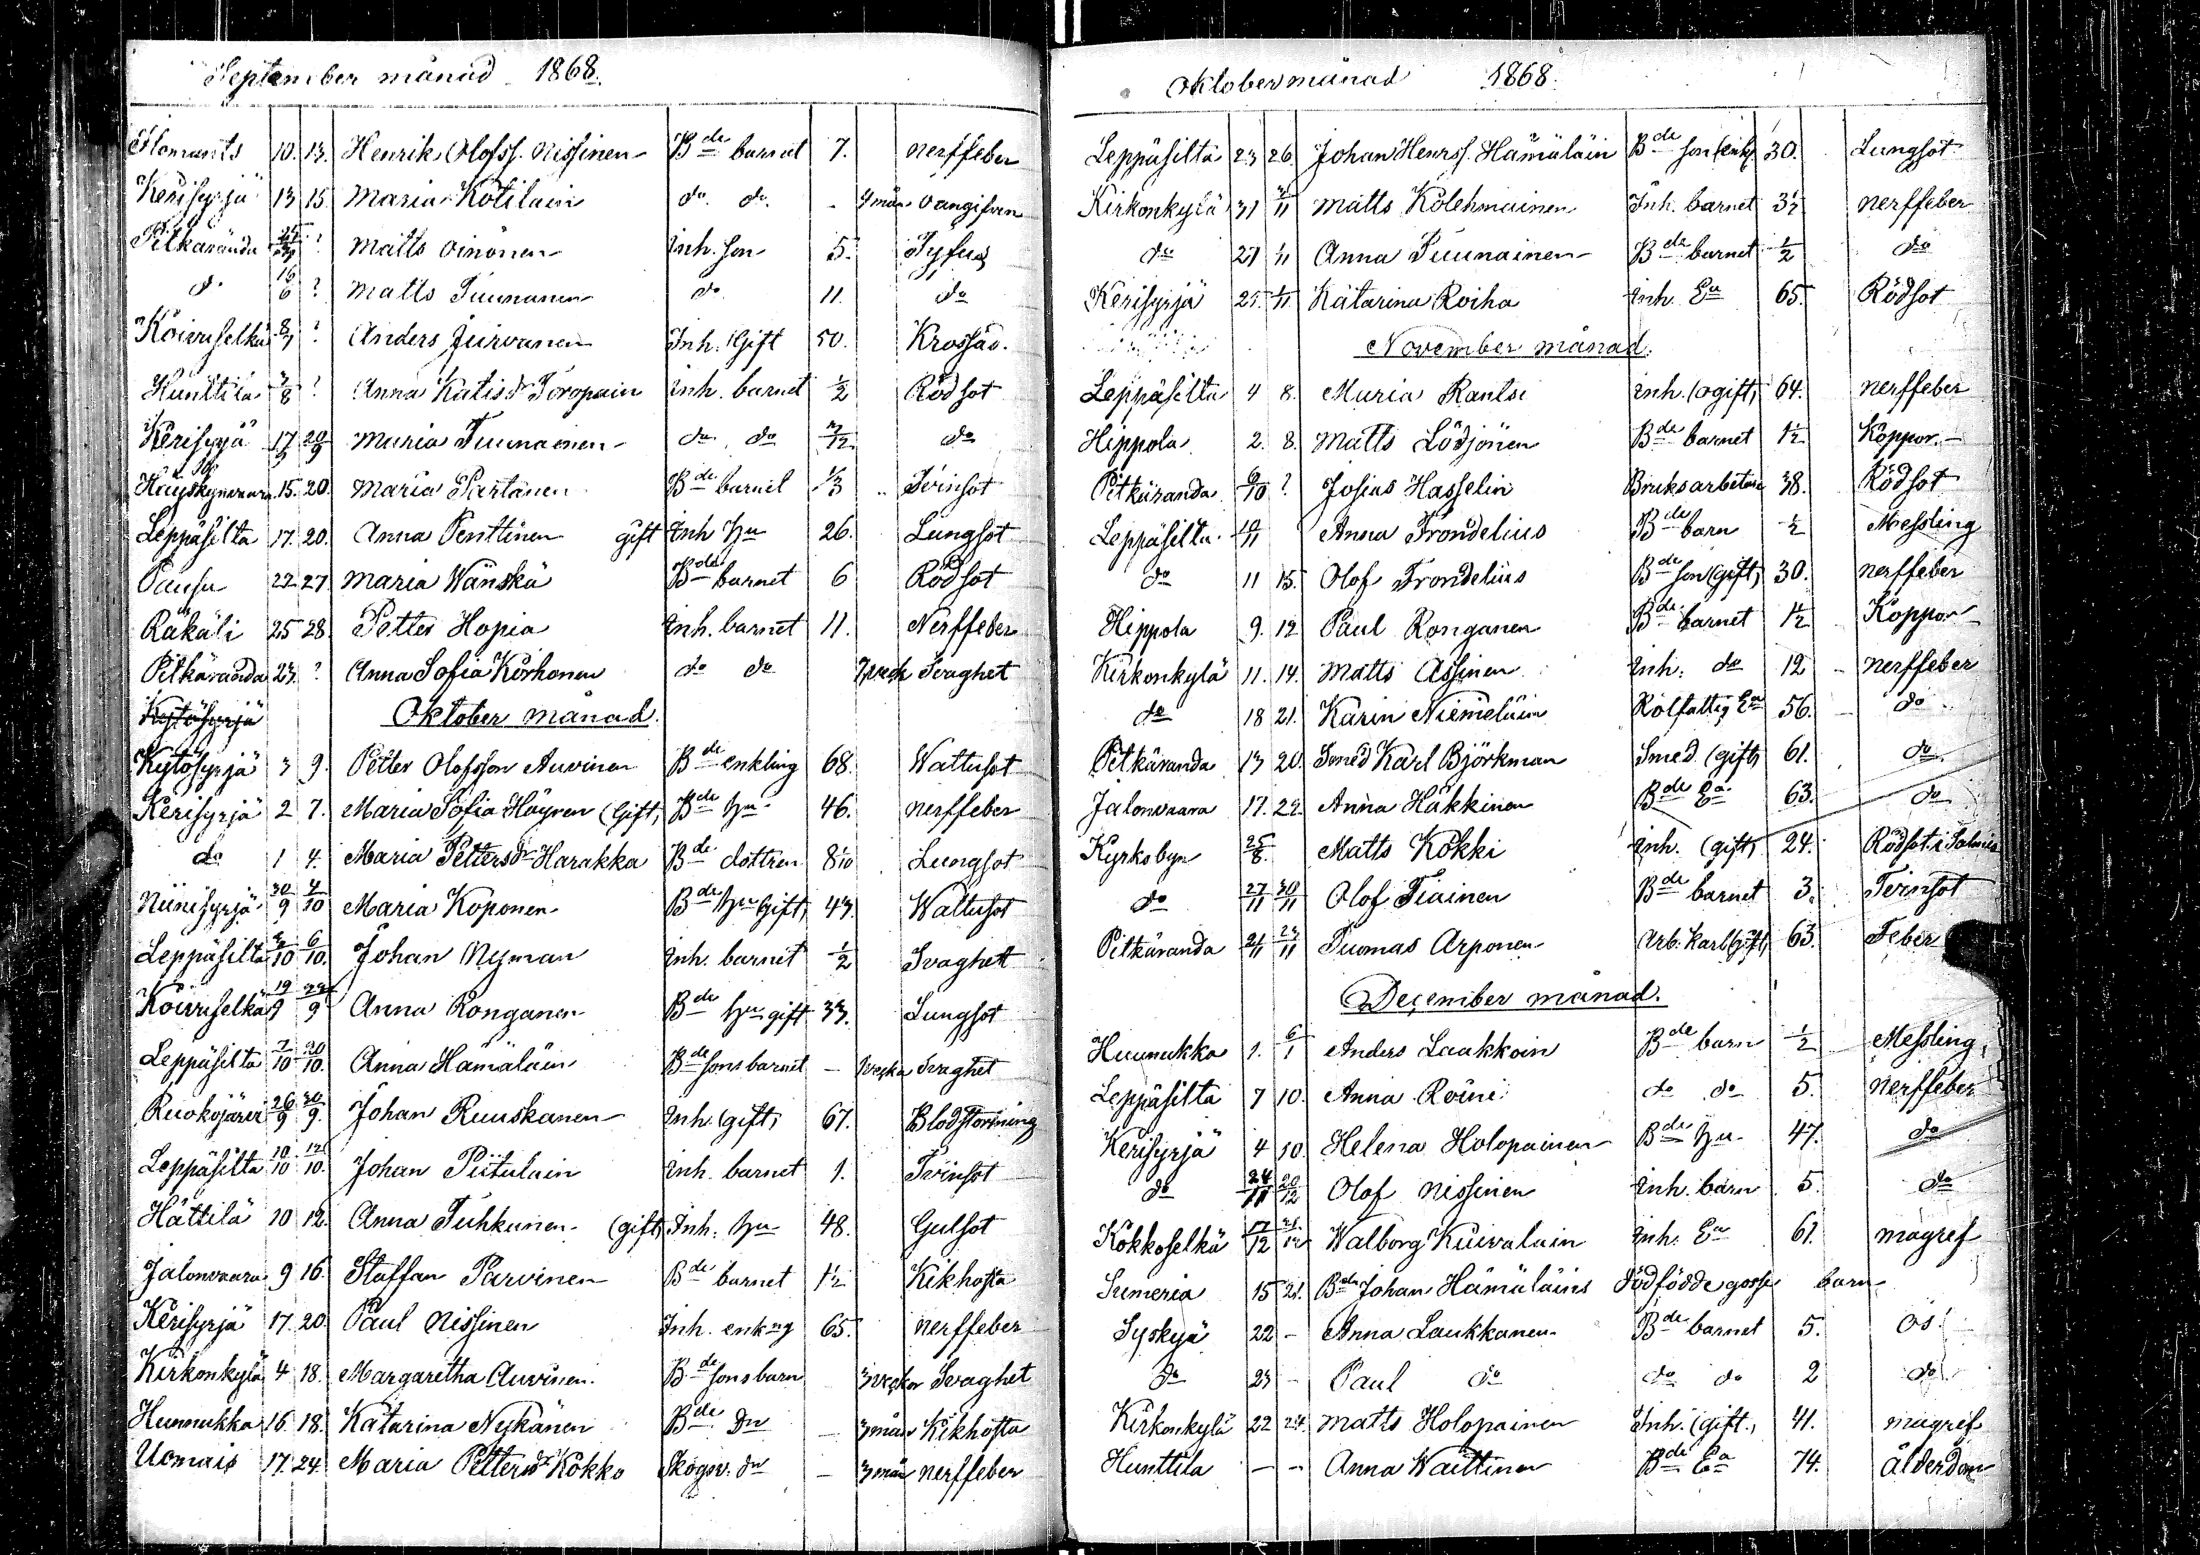 September månad 1868.
Ilomants 10. 13. Henrik Olofss. Nissinen Bde barnet 7. nerffeber
Kerisyrjä 13 15 Maria Kotilain do do - 4 mån oangifven
Pitkäranda ? Matts Oinonen Inh. son 5. Tyfus
do 16/6 ? Matts Tuunanen do 11. do
Koiruselkä 8/7 ? Anders Jürvanen Inh. Gift 50. Krossad.
Hunttila 3/8 ? Anna Katis dr Toropain Inh. barnet 1/2 Rödsot
Kerisyrjä 17/9 20/9 Maria Tuunainen do do 7/12 do
15. 20. Maria Partanen Bde barnet 1/3 Tvinsot
Leppäsilta 17. 20. Anna Penttinen gift Inh hu 26. Lungsot
Pausu 22 27. Maria Wänskä Bde barnet 6 Rödsot
Räkäli 25 28 Petter Hopia Inh. barnet 11. Nerffeber
Pitkäranda 23 ? Anna Sofia Korhonen do do 7 veck Svaghet
Kytösyrjä Oktober månad.
Kytösyrjä 3 9. Petter Olofsson Auvinen Bde enkling 68. Wattusot
Kerisyrjä 2 7. Maria Sofia Häyren (Gift) Bde hu 46. nerffeber
do 1 4. Maria Petters dr Harakka Bde dottren 8 1/10 Lungsot
Niinisyrjä 30/9 4/10 Maria Koponen Bde hu Gift) 43. Wattusot
Leppäsilta 2/10 6/10. Johan Nyman Inh. barnet 1/2 Svaghet
Koiruselkä 19/9 22/9 Anna Ronganen Bde hu gift 33. Lungsot
Leppäsilta 7/10 20/10. Anna Hämäläin Bde sonsbarnet - veka Svaghet
Ruokojärvi 26/9 30/9. Johan Ruuskanen Inh. (gift) 67. Blodstörtning
Leppäsilta 10/10 12/10. Johan Piitulain Inh. barnet 1. Tvinsot
Hättilä 10 12. Anna Tuhkunen (gift) Inh. hu 48. Gulsot
Jalonvaara 9 16. Staffan Parvinen Bde barnet 1 1/2 Kikhosta
Kerisyrjä 17. 20. Paul Nissinen Inh. enkng 65. nerffeber
Kirkonkylä 4 18. Margaretha Auvinen Bde sonsbarn 3 veckor Svaghet
Hunnukka 16. 18. Katarina Nykänen Bde dr - 3 mån Kikhosta
Uomais 17. 24. Maria Petters dr Kokko Skogsv. dr - 3 mån nerffeber
Oktober månad 1868.
Leppäsilta 23 26. Johan Henrs. Hämäläin Bde son (enk) 30. Lungsot
Kirkonkylä 31 Matts Kolehmainen Inh. barnet 3 1/2 nerffeber
do 27 1/11 Anna Tuunainen Bde barnet 1/2 do
Kerisyrjä 25. 1/11 Katarina Roiha Inh. Ea 65. Rödsot
November månad.
Leppäsilta 4 8. Maria Rantsi Inh. (ogift) 64. nerffeber
Hippola 2. 8. Matts Lödjönen Bde barnet 1 1/2 Koppor.
Pitkäranda 6/10 ? Josias Hasselin Bruksarbetare 38. Rödsot
Leppäsilta 10/11 Anna Trondelius Bde barn 1/2 Messling
do 11 15. Olof Trondelius Bde son (gift) 30. nerffeber
Hippola 9. 12 Paul Ronganen Bde barnet 1 1/2 Koppor
Kirkonkylä 11. 14. Matts Assinen Inh. do 12 - nerffeber
do 18 21. Karin Niemeläin Rotfattig Ea 56. do
Pitkäranda 13 20. Smed Karl Björkman Smed (gift) 61. do
Jalonvaara 17. 22. Anna Häkkinen Bde Ea 63. do
Kyrkobyn 25/8. Matts Kokki Inh. (gift) 24. Rödsot i Salmis
do 27/11 30/11 Olof Tiainen Bde barnet 3. Tvinsot
Pitkäranda 21/11 23/11 Tuomas Arponen Arb. karl (gift) 63. Feber
December månad.
Huunukka 1. 6/1 Anders Laakkoin Bde barn 1/2 Messling
Leppäsilta 7 10. Anna Roini do do 5. nerffeber
Kerisyrjä 4 10. Helena Holopainen Bde hu 47. do
do 24/11 20/12 Olof Nissinen Inh. barn 5. do
Kokkoselkä 17/12 21/12 Walborg Kuivalain Inh. Ea 61. magref
Sumeria 15 21. Bde Johan Hämäläins dödfödde gosse barn
Syskyä 22 - Anna Laukkanen Bde barnet 5. os!
do 23 - Paul do do do 2 do
Kirkonkylä 22 24. Matts Holopainen Inh. (gift.) 41. magref
Hunttila - - Anna Waittinen Bde Ea 74. ålderdom